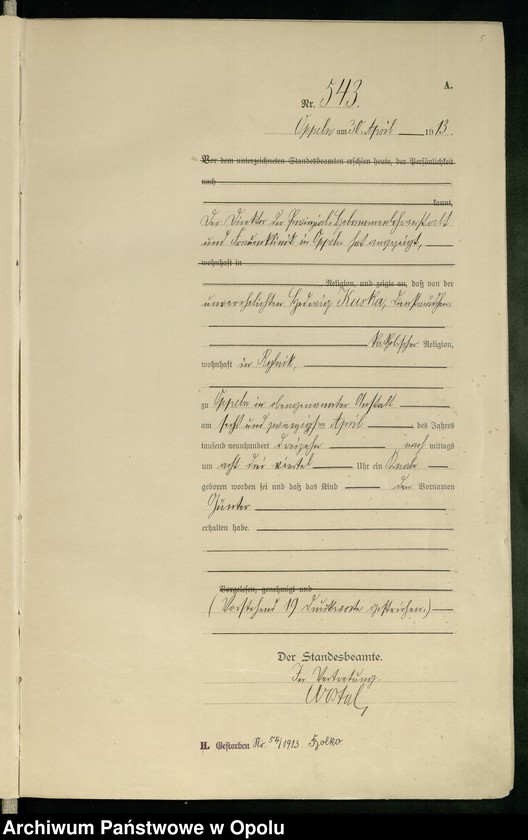 5
A.
Nr. 543.
Oppeln am 30. April 1913.
Vor dem unterzeichneten Standesbeamten erschien heute, der Persönlichkeit
nach
kannt,
Der Direktor der Provinzial-Hebammenlehranstalt
und Frauenklinik in Oppeln hat angezeigt,
wohnhaft in
Religion, und zeigte an, daß von der
unverehelichten Hedwig Kuska, Dienstmädchen
katholischer Religion,
wohnhaft in Rybnik,
zu Oppeln in obengenannter Anstalt
am sechs und zwanzigsten April des Jahres
tausend neunhundert dreizehn nach mittags
um acht drei viertel Uhr ein Knabe
geboren worden sei und daß das Kind den Vornamen
Günter
erhalten habe.
Vorgelesen, genehmigt und
(Vorstehend 19 Druckworte gestrichen.)
Der Standesbeamte.
In Vertretung.
Wostal
H. Gestorben Nr. 54/1913 Szolko
Archiwum Państwowe w Opolu